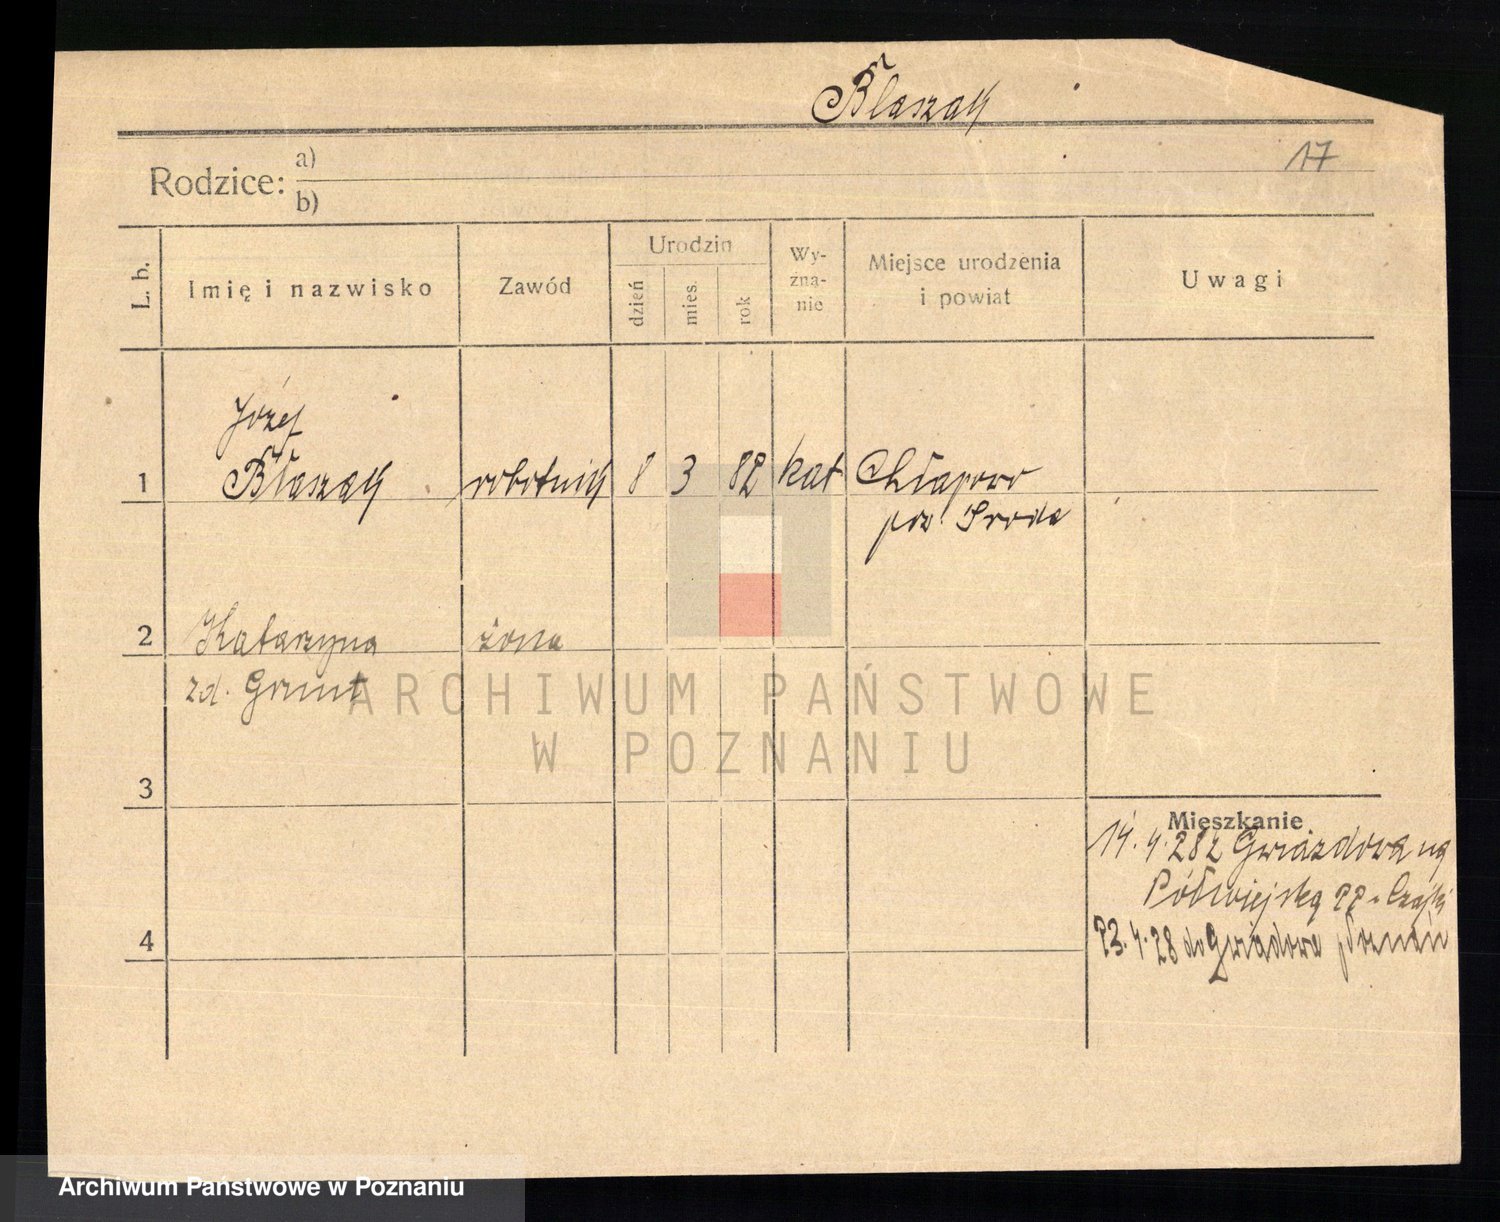 Błaszak
17
Rodzice: a)
b)
L. b.
Imię i nazwisko
Zawód
Urodzin
dzień
mies.
rok
Wy-
zna-
nie
Miejsce urodzenia
i powiat
Uwagi
Józef
1 Błaszak robotnik 8 3 82 kat Chłapowo
pow. Sroda
2 Katarzyna żona
zd.
ARCHIWUM PAŃSTWOWE
W POZNANIU
3
Mieszkanie
14. 4. 28 z Gwiazdowa na
Półwiejską 22
4
23. 4. 28 do Gwiadowa Poznań
Archiwum Państwowe w Poznaniu